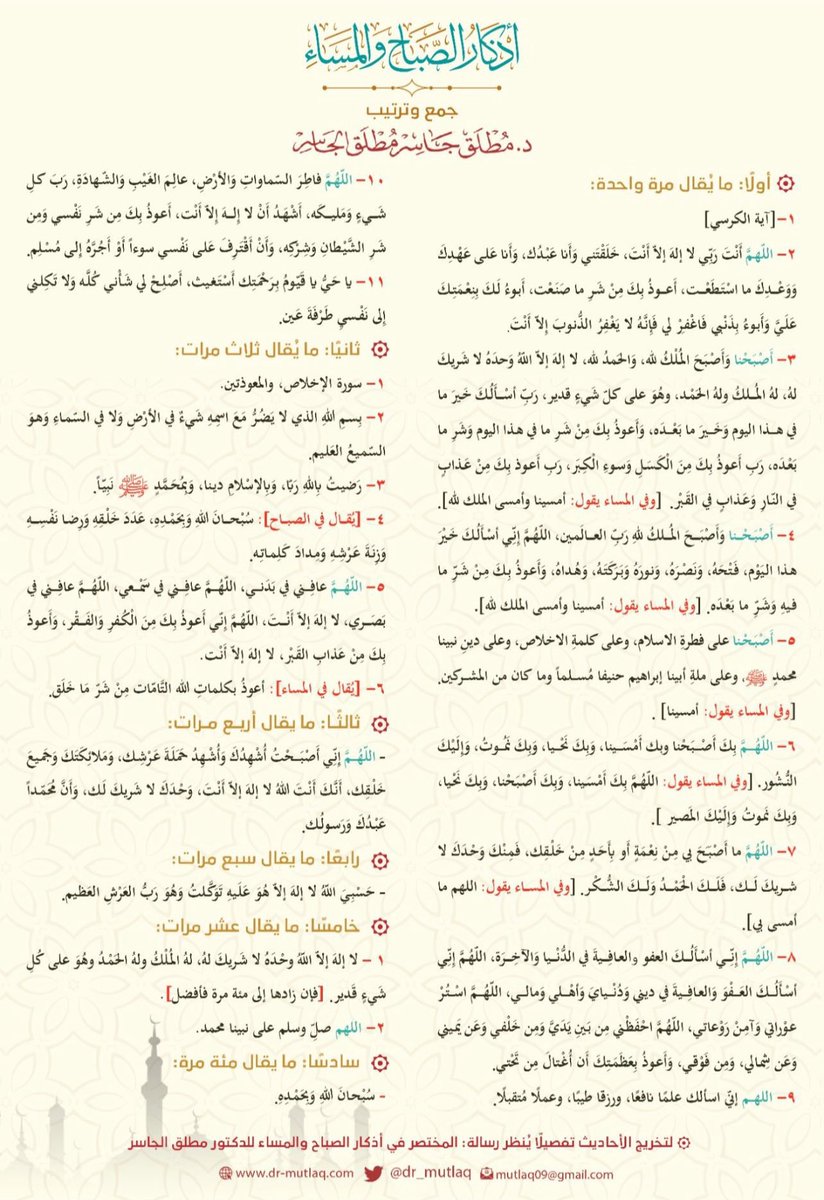 أَذْكَارُ الصَّبَاحِ وَالْمَسَاءِ
جمع وترتيب
د. مُطْلَق جَاسِر مُطْلَق الجَاسِر
أولًا: ما يُقال مرة واحدة:
١- [آية الكرسي]
٢- اللّهمَّ أَنْتَ رَبِّي لا إلهَ إلاّ أَنْتَ، خَلَقْتَني وَأنا عَبْدُك، وَأنا عَلى عَهْدِكَ
وَوَعْدِكَ ما اسْتَطَعْت، أَعوذُ بِكَ مِنْ شَرِّ ما صَنَعْت، أَبوءُ لَكَ بِنِعْمَتِكَ
عَلَيَّ وَأَبوءُ بِذَنْبِي فَاغْفِرْ لي فَإِنَّهُ لا يَغْفِرُ الذُّنوبَ إِلاّ أَنْتَ.
٣- أَصْبَحْنا وَأَصْبَحَ المُلْكُ لله، وَالحَمدُ لله، لا إلهَ إلاّ اللّهُ وَحدَهُ لا شَريكَ
لهُ، لهُ المُلكُ ولهُ الحَمْد، وهُوَ على كلّ شَيءٍ قدير، رَبِّ أسْألُكَ خَيرَ ما
في هذا اليوم وَخَيرَ ما بَعْدَه، وَأَعوذُ بِكَ مِنْ شَرِ ما في هذا اليوم وَشَرِ ما
بَعْدَه، رَبِّ أَعوذُ بِكَ مِنَ الْكَسَلِ وَسوءِ الْكِبَر، رَبِ أَعوذ بِكَ مِنْ عَذابٍ
في النّارِ وَعَذابٍ في القَبْر. [وفي المساء يقول: أمسينا وأمسى الملك لله].
٤- أَصْبَحْنا وَأَصْبَحَ المُلكُ للهِ رَبِّ العالمين، اللّهُمَّ إِنّي أَسْألُكَ خَيْرَ
هذا اليَوْم، فَتْحَهُ، وَنَصْرَهُ، وَنورَهُ وَبَرَكَتَهُ، وَهُداهُ، وَأَعوذُ بِكَ مِنْ شَرِّ ما
فيهِ وَشَرِّ ما بَعْدَه. [وفي المساء يقول: أمسينا وأمسى الملك لله].
٥- أَصْبَحْنا على فطرةِ الاسلام، وعلى كلمةِ الاخلاص، وعلى دينِ نبينا
محمدٍ ﷺ، وعلى ملةِ أبينا إبراهيم حنيفا مُسلماً وما كان من المشركين.
[وفي المساء يقول: أمسينا] .
٦- اللّهُمَّ بِكَ أَصْبَحْنا وبك أمْسَينا، وَبِكَ نَحْيا، وَبِكَ نَمُوتُ، وَإِلَيْكَ
النُّشُور. [وفي المساء يقول: اللّهُمَّ بِكَ أَمْسَينا، وَبِكَ أَصْبَحْنا، وَبِكَ نَحْيا،
وَبِكَ نَموتُ وَإِلَيْكَ المَصير ].
٧- اللّهُمَّ ما أَصْبَحَ بي مِنْ نِعْمَةٍ أَو بِأَحَدٍ مِنْ خَلْقِك، فَمِنْكَ وَحْدَكَ لا
شريكَ لَك، فَلَكَ الْحَمْدُ وَلَكَ الشُّكْر. [وفي المساء يقول: اللهم ما
أمسى بي].
٨- اللّهُمَّ إِنّي أسْألُكَ العفو والعافِيةَ في الدُّنْيا وَالآخِرَة، اللّهُمَّ إِنِّي
أسْألُكَ العَفْوَ وَالعافِيةَ في ديني وَدُنْيايَ وَأهْلي وَمالي، اللّهُمَّ اسْتُرْ
عوْراتي وَآمِنْ رَوْعاتي، اللّهُمَّ احْفَظْني مِن بَينِ يَدَيَّ وَمِن خَلْفي وَعَن يَميني
وَعَن شِمالي، وَمِن فَوْقي، وَأَعوذُ بِعَظَمَتِكَ أَن أُغْتالَ مِن تَحْتي.
٩- اللهم إنّي اسالك علمًا نافعًا، ورزقا طيبًا، وعملًا مُتقبلًا.
١٠- اللّهُمَّ فاطِرَ السّماواتِ وَالأرْضِ، عالِمَ الغَيْبِ وَالشّهادَةِ، رَبَ كلِ
شَيءٍ وَمَليكَه، أَشْهَدُ أَنْ لا إِلهَ إِلاّ أَنْت، أَعوذُ بِكَ مِن شَرِ نَفْسي وَمِن
شَرِ الشَّيْطانِ وَشِرْكِه، وَأَنْ أَقْتَرِفَ عَلى نَفْسي سوءاً أَوْ أَجُرَّهُ إلى مُسْلِم.
١١- يا حَيُّ يا قَيّومُ بِرَحْمَتِك أَسْتَغيث، أَصْلِحْ لي شَأْني كُلَّه وَلا تَكِلني
إلى نَفْسي طَرْفَةَ عَين.
ثانيًا: ما يُقال ثلاث مرات:
١- سورة الإخلاص، والمعوذتين.
٢- بِسمِ اللهِ الذي لا يَضُرُّ مَعَ اسمِهِ شَيءٌ في الأرْضِ وَلا في السّماءِ وَهوَ
السّميعُ العَليم.
٣- رَضيتُ بِاللهِ رَبًا، وَبِالإسْلامِ دينا، وَبِمُحَمَّدٍ ﷺ نَبِيّاً.
٤- [يُقال في الصباح]: سُبْحانَ اللهِ وَبِحَمْدِهِ، عَدَدَ خَلْقِهِ وَرِضا نَفْسِهِ
وَزِنَةَ عَرْشِهِ وَمِدادَ كَلِماتِه.
٥- اللّهُمَّ عافِني في بَدَني، اللّهُمَّ عافِني في سَمْعي، اللّهُمَّ عافِني في
بَصَري، لا إلهَ إلاّ أَنْتَ، اللّهُمَّ إِنّي أَعوذُ بِكَ مِنَ الْكُفرِ وَالفَقْر، وَأَعوذُ
بِكَ مِنْ عَذابِ القَبْر، لا إلهَ إلاّ أَنْت.
٦- [يُقال في المساء]: أعوذُ بكلماتِ الله التَّامّات مِنْ شَرِّ مَا خَلَق.
ثالثًا: ما يقال أربع مرات:
- اللّهُمَّ إِنّي أَصْبَحْتُ أُشْهِدُكَ وَأُشْهِدُ حَمَلَةَ عَرْشِك، وَمَلائِكَتَكَ وَجَميعَ
خَلْقِك، أَنَّكَ أَنْتَ اللهُ لا إلهَ إلاّ أَنْتَ، وَحْدَكَ لا شَريكَ لَك، وَأَنَّ مُحَمّداً
عَبْدُكَ وَرَسولُك.
رابعًا: ما يقال سبع مرات:
- حَسْبِيَ اللّهُ لا إلهَ إلاّ هُوَ عَلَيهِ تَوَكَّلتُ وَهُوَ رَبُّ العَرْشِ العَظيم.
خامسًا: ما يقال عشر مرات:
١ - لا إلهَ إلاّ اللّهُ وحْدَهُ لا شَريكَ لهُ، لهُ المُلْكُ ولهُ الحَمْدُ وهُوَ على كُلِ
شَيءٍ قَدير. [فإن زادها إلى مئة مرة فأفضل].
٢- اللهم صلِّ وسلم على نبينا محمد.
سادسًا: ما يقال مئة مرة:
- سُبْحانَ اللهِ وَبِحَمْدِهِ.
لتخريج الأحاديث تفصيلًا يُنظر رسالة: المختصر في أذكار الصباح والمساء للدكتور مطلق الجاسر
www.dr-mutlaq.com @dr_mutlaq mutlaq09@gmail.com